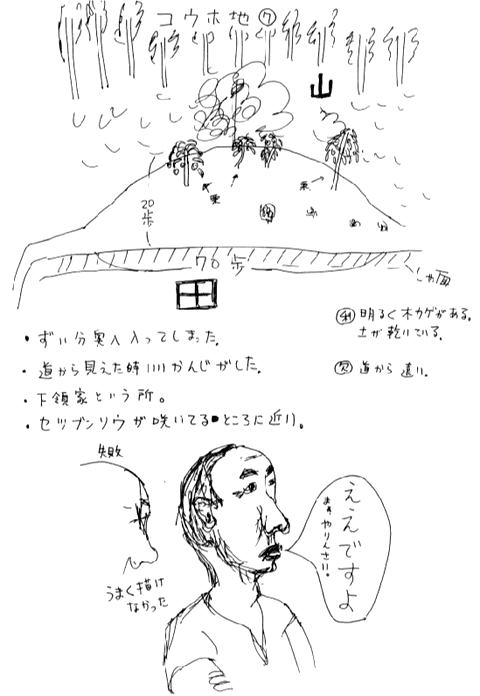 コウホ地⑦
山
栗
栗
20歩
70歩
しゃ面
田
・ずい分奥へ入ってしまった。
・道から見えた時いいかんじがした。
・下領家という所。
・セツブンソウが咲いてるところに近い。
利 明るく木カゲがある。
土が乾いている。
欠 道から遠い。
失敗
うまく描け
なかった
ええですよ
まぁやりんさい。